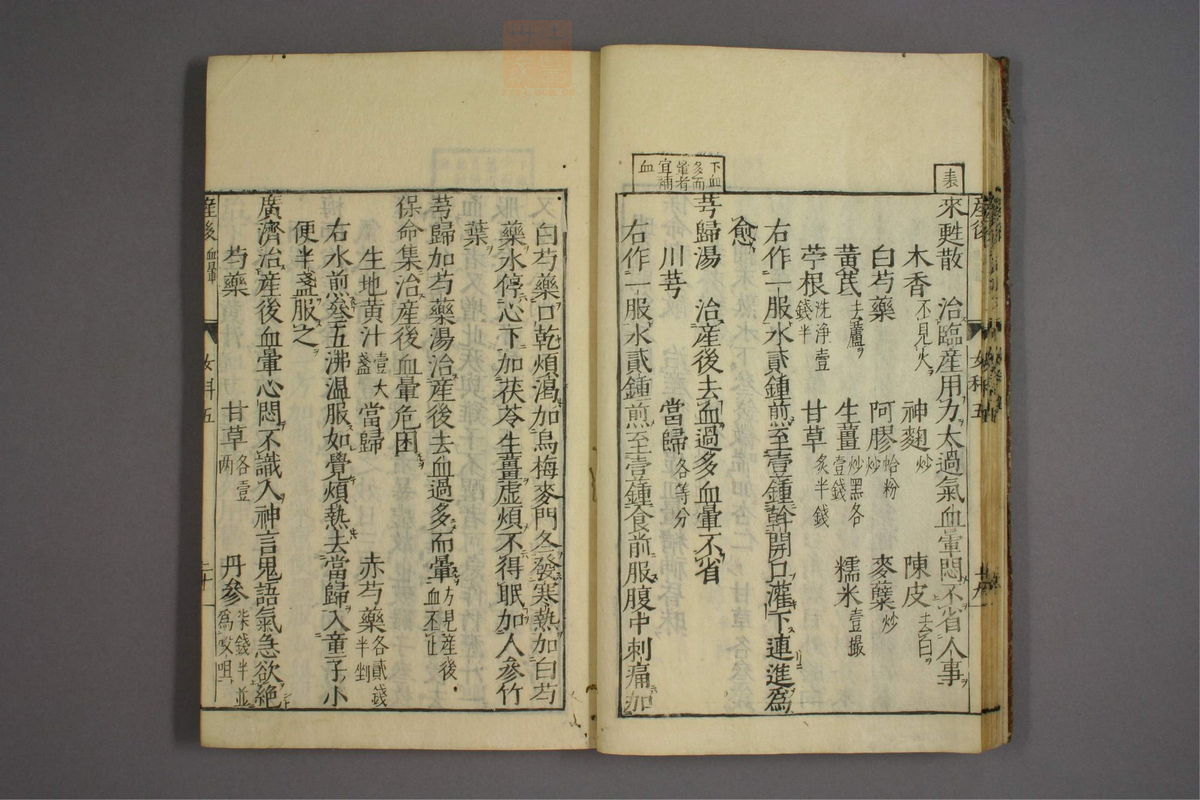 産後
女科五
表
來甦散　治臨産用力太過氣血暈悶不省人事
木香不見火　神麯炒　陳皮去白
白芍藥　阿膠蛤粉炒　麥蘖炒
黄芪去蘆　生薑炒黑各壹錢　糯米壹撮
苧根洗淨壹錢半　甘草炙半錢
右作一服水貳鍾煎至壹鍾幹開口灌下連進爲
愈
下血多而暈者宜補血
芎歸湯　治産後去血過多血暈不省
川芎　當歸各等分
右作一服水貳鍾煎至壹鍾食前服腹中刺痛加
白芍藥口乾煩渴加烏梅麥門冬發寒熱加白芍
藥水停心下加茯苓生薑虚煩不得眠加人參竹
葉
芎歸加芍藥湯治産後去血過多而暈方見産後血不止
保命集治産後血暈危困
生地黄汁壹大盞　當歸　赤芍藥各貳錢半剉
右水煎叄五沸温服如覺煩熱去當歸入童子小
便半盞服之
廣濟治産後血暈心悶不識人神言鬼語氣急欲絶
芍藥　甘草各壹兩　丹參柒錢半並爲㕮咀
産後　血暈
女科五
二十